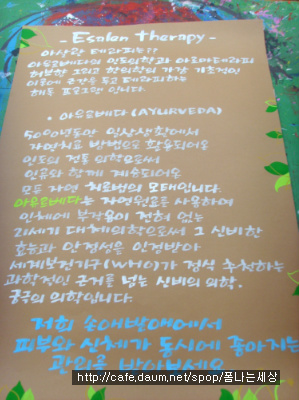 - Esalen therapy -
에살렌 테라피는??
아유르베다의 인도의학과 아로마테라피
허브향 그리고 한의학의 가장 기초적인
이론에 근거를 두고 테라피하는
해독 프로그램입니다.
• 아유르베다 (AYURVEDA)
5000년동안 일상생활에서
자연치료 방법으로 활용되어온
인도의 전통 의학으로써
인류와 함께 계속되어온
모든 자연 치료법의 모태입니다.
아유르베다는 자연원료를 사용하여
인체에 부작용이 전혀 없는
21세기 대체의학으로써 그 신비한
효능과 안정성을 인정받아
세계보건기구(WHO)가 정식 추천하는
과학적인 근거를 넘는 신비의 의학.
궁극의 의학입니다.
저희 손애발애에서
피부와 신체가 동시에 좋아지는
관리를 받아보세요
http://cafe.daum.net/spop/품나는세상